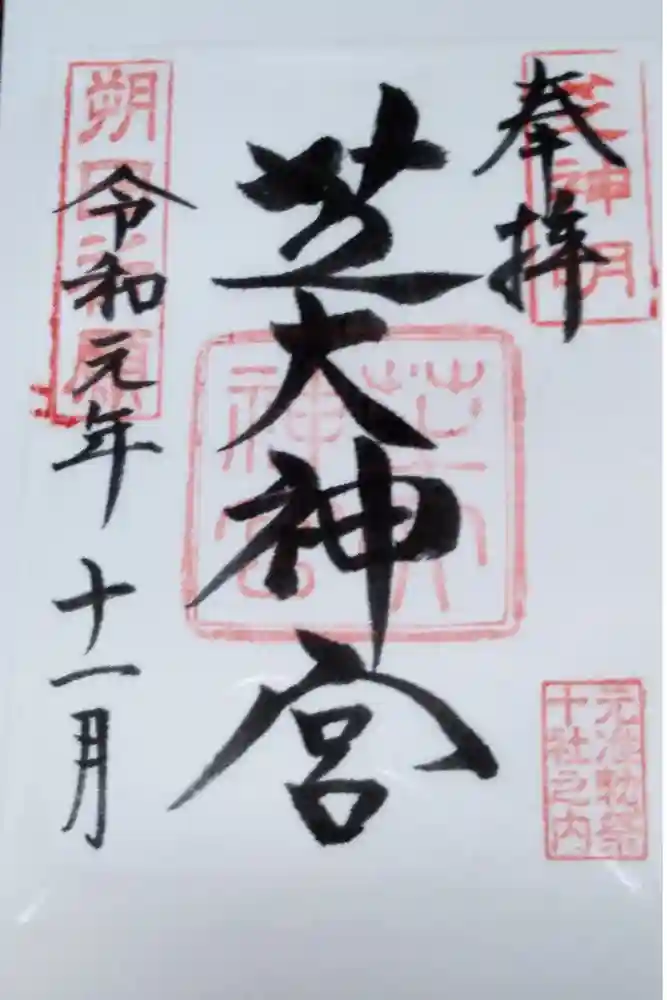 奉拝
芝神明
芝大神宮
芝大神宮
元准勅祭
十社之内
朔日祈願
令和元年十一月